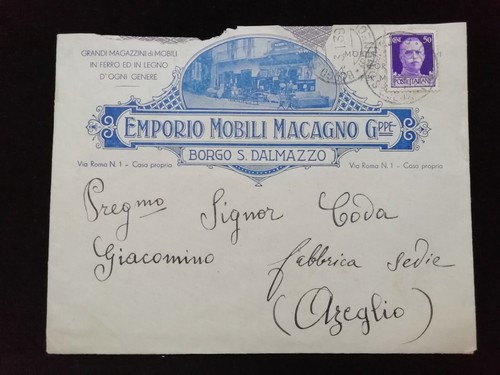 GRANDI MAGAZZINI di MOBILI
IN FERRO ED IN LEGNO
D'OGNI GENERE
50
POSTE ITALIANE
EMPORIO MOBILI MACAGNO GPPE
BORGO S. DALMAZZO
Via Roma N. 1 - Casa propria
Via Roma N. 1 - Casa propria
Pregmo Signor Coda
Giacomino fabbrica sedie
(Azeglio)